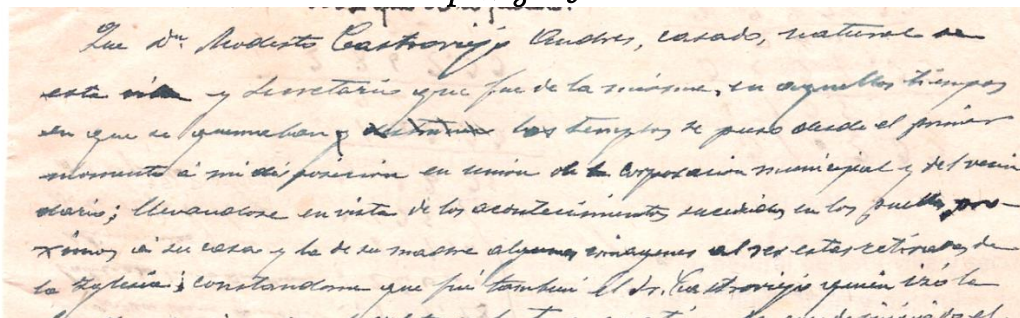 Que Dn. Modesto Castroviejo Andres, casado, natural de
esta villa y Secretario que fue de la misma, en aquellos tiempos
en que se quemaban y destruian los templos se puso desde el primer
momento á mi disposición en unión de la Corporación municipal y del vecin
dario; llevandose en vista de los acontecimientos sucedidos en los pueblos pro-
ximos á su casa y la de su madre algunas imagenes al ser estas retiradas de
la Iglesia; constandome que fué también el Sr. Castroviejo quien izó la